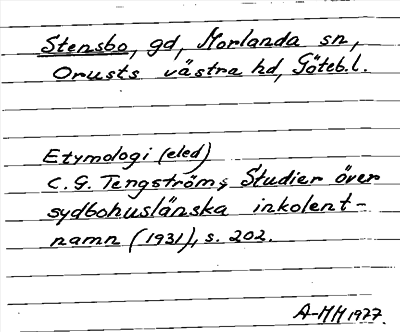 Stensbo, gd, Morlanda sn,
Orusts västra hd, Göteb.l.
Etymologi (eled)
C. G. Tengström, Studier över
sydbohuslänska inkolent-
namn (1931), s. 202.
A-MH 1977.